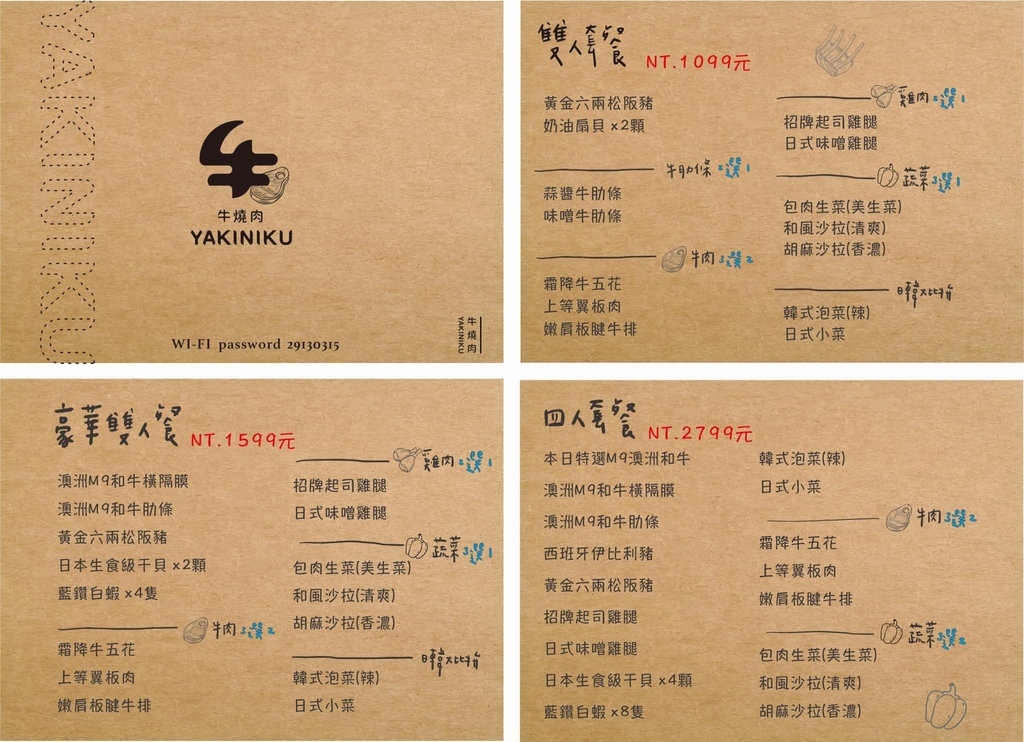 YAKINIKU
牛
牛燒肉
YAKINIKU
WI-FI password 29130315
牛燒肉
YAKINIKU
雙人套餐
NT.1099元
黃金六兩松阪豬
奶油扇貝 x2顆
牛肋條 2選1
蒜醬牛肋條
味噌牛肋條
牛肉 3選2
霜降牛五花
上等翼板肉
嫩肩板腱牛排
雞肉 2選1
招牌起司雞腿
日式味噌雞腿
蔬菜 3選1
包肉生菜(美生菜)
和風沙拉(清爽)
胡麻沙拉(香濃)
日韓大比拚
韓式泡菜(辣)
日式小菜
豪華雙人餐
NT.1599元
澳洲M9和牛橫隔膜
澳洲M9和牛肋條
黃金六兩松阪豬
日本生食級干貝 x2顆
藍鑽白蝦 x4隻
牛肉 3選2
霜降牛五花
上等翼板肉
嫩肩板腱牛排
雞肉 2選1
招牌起司雞腿
日式味噌雞腿
蔬菜 3選1
包肉生菜(美生菜)
和風沙拉(清爽)
胡麻沙拉(香濃)
日韓大比拚
韓式泡菜(辣)
日式小菜
四人套餐
NT.2799元
本日特選M9澳洲和牛
澳洲M9和牛橫隔膜
澳洲M9和牛肋條
西班牙伊比利豬
黃金六兩松阪豬
招牌起司雞腿
日式味噌雞腿
日本生食級干貝 x4顆
藍鑽白蝦 x8隻
韓式泡菜(辣)
日式小菜
牛肉 3選2
霜降牛五花
上等翼板肉
嫩肩板腱牛排
蔬菜 3選2
包肉生菜(美生菜)
和風沙拉(清爽)
胡麻沙拉(香濃)